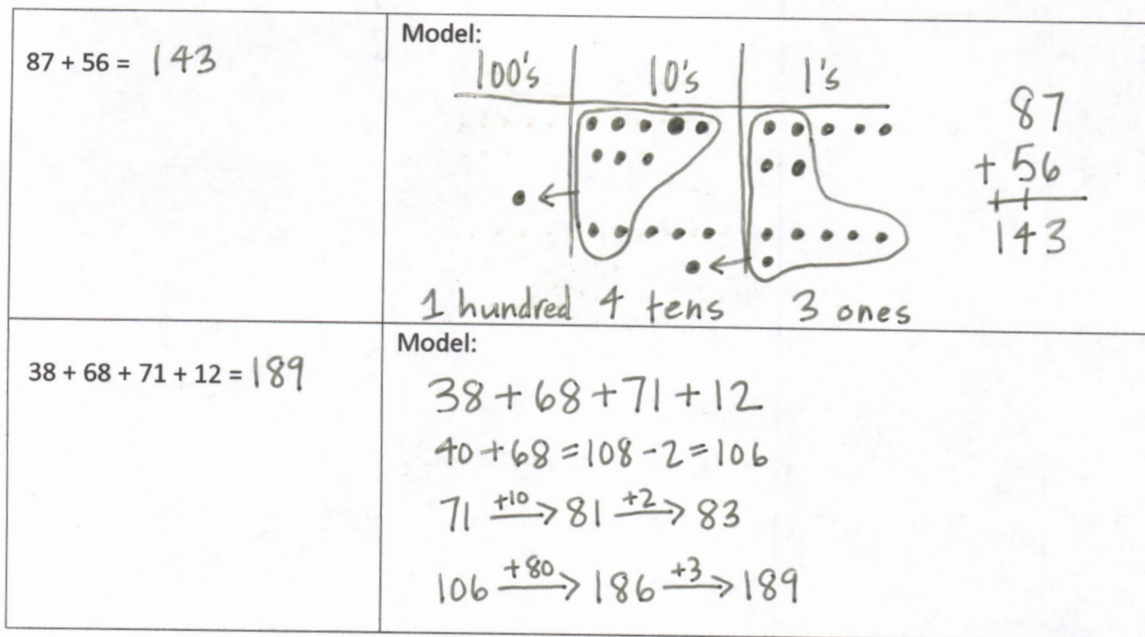 87 + 56 = 143
Model:
100's 10's 1's
1 hundred 4 tens 3 ones
87
+ 56
143
38 + 68 + 71 + 12 = 189
Model:
38 + 68 + 71 + 12
40 + 68 = 108 - 2 = 106
71 +10→ 81 +2→ 83
106 +80→ 186 +3→ 189